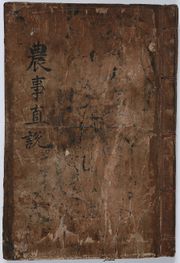 農事直說